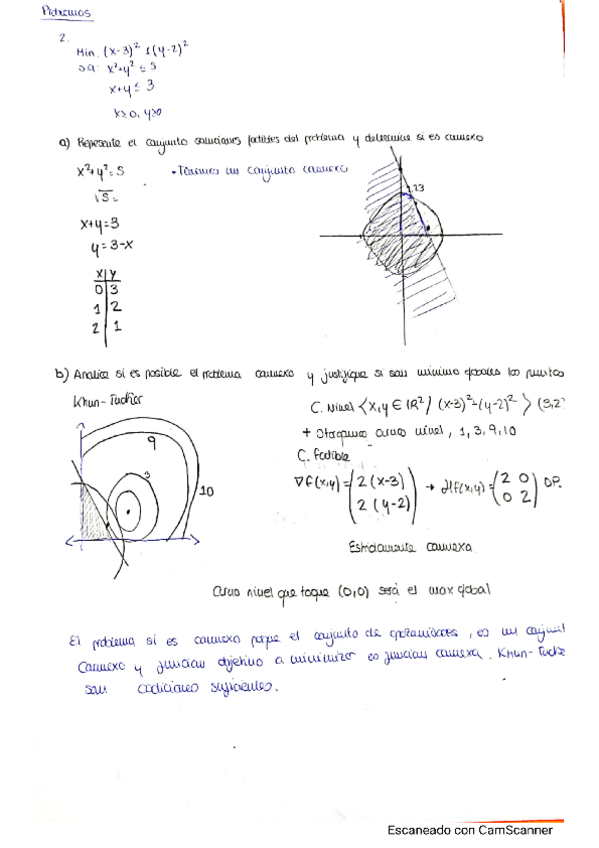 Problemas
2.
Min. (x-3)² + (y-2)²
s.a. x²+y² ≤ 5
x+y ≤ 3
x≥0, y≥0
a) Represente el conjunto soluciones factibles del problema y determine si es convexo
x²+y²=5
• Tenemos un conjunto convexo
√5 =
x+y=3
y = 3-x
x y
0 3
1 2
2 1
b) Analice si es posible el problema convexo y justifique si son minimo globales los puntos
Khun-Tucker
C. Nivel <x,y ∈ IR² / (x-3)²-(y-2)² > (3,2)
+ Otorgamos curvas nivel, 1, 3, 9, 10
C. Factible
9
3
10
∇f(x,y) = (2(x-3) 2(y-2)) → Hf(x,y) = (2 0 0 2) DP.
Estrictamente convexa
Curva nivel que toque (0,0) será el max global
El problema si es convexo porque el conjunto de oportunidades, es un conjunt
convexo y funcion objetivo a minimizar es funcion convexa. Khun-Tucke
son condiciones suficientes.
Escaneado con CamScanner